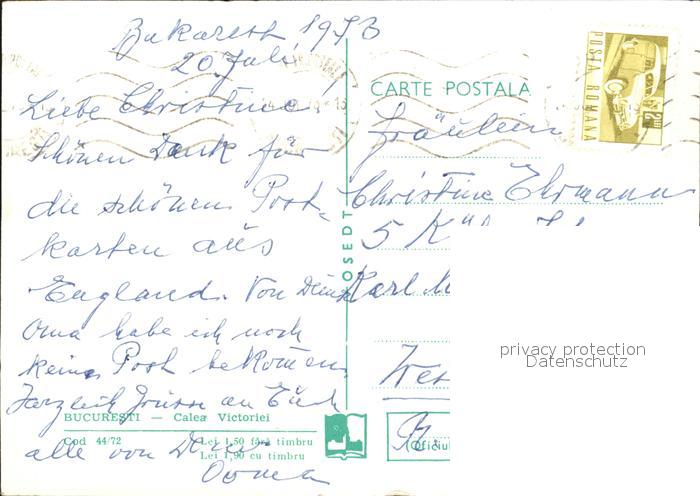 Bukarest 1973
20 Juli
Liebe Christine!
Schönen Dank für
die schönen Post-
karten aus
England. Von Deine
Oma habe ich noch
keine Post bekomen.
Herzlich Grüsse an Euch
alle von Deine
Ooma
BUCUREȘTI — Calea Victoriei
Cod 44/72
Lei 1,50 fără timbru
Lei 1,90 cu timbru
OSEDT
CARTE POSTALA
POSTA ROMANA
Fräulein
Christine Ehrmann
5
Karl
(Oficiul
privacy protection
Datenschutz